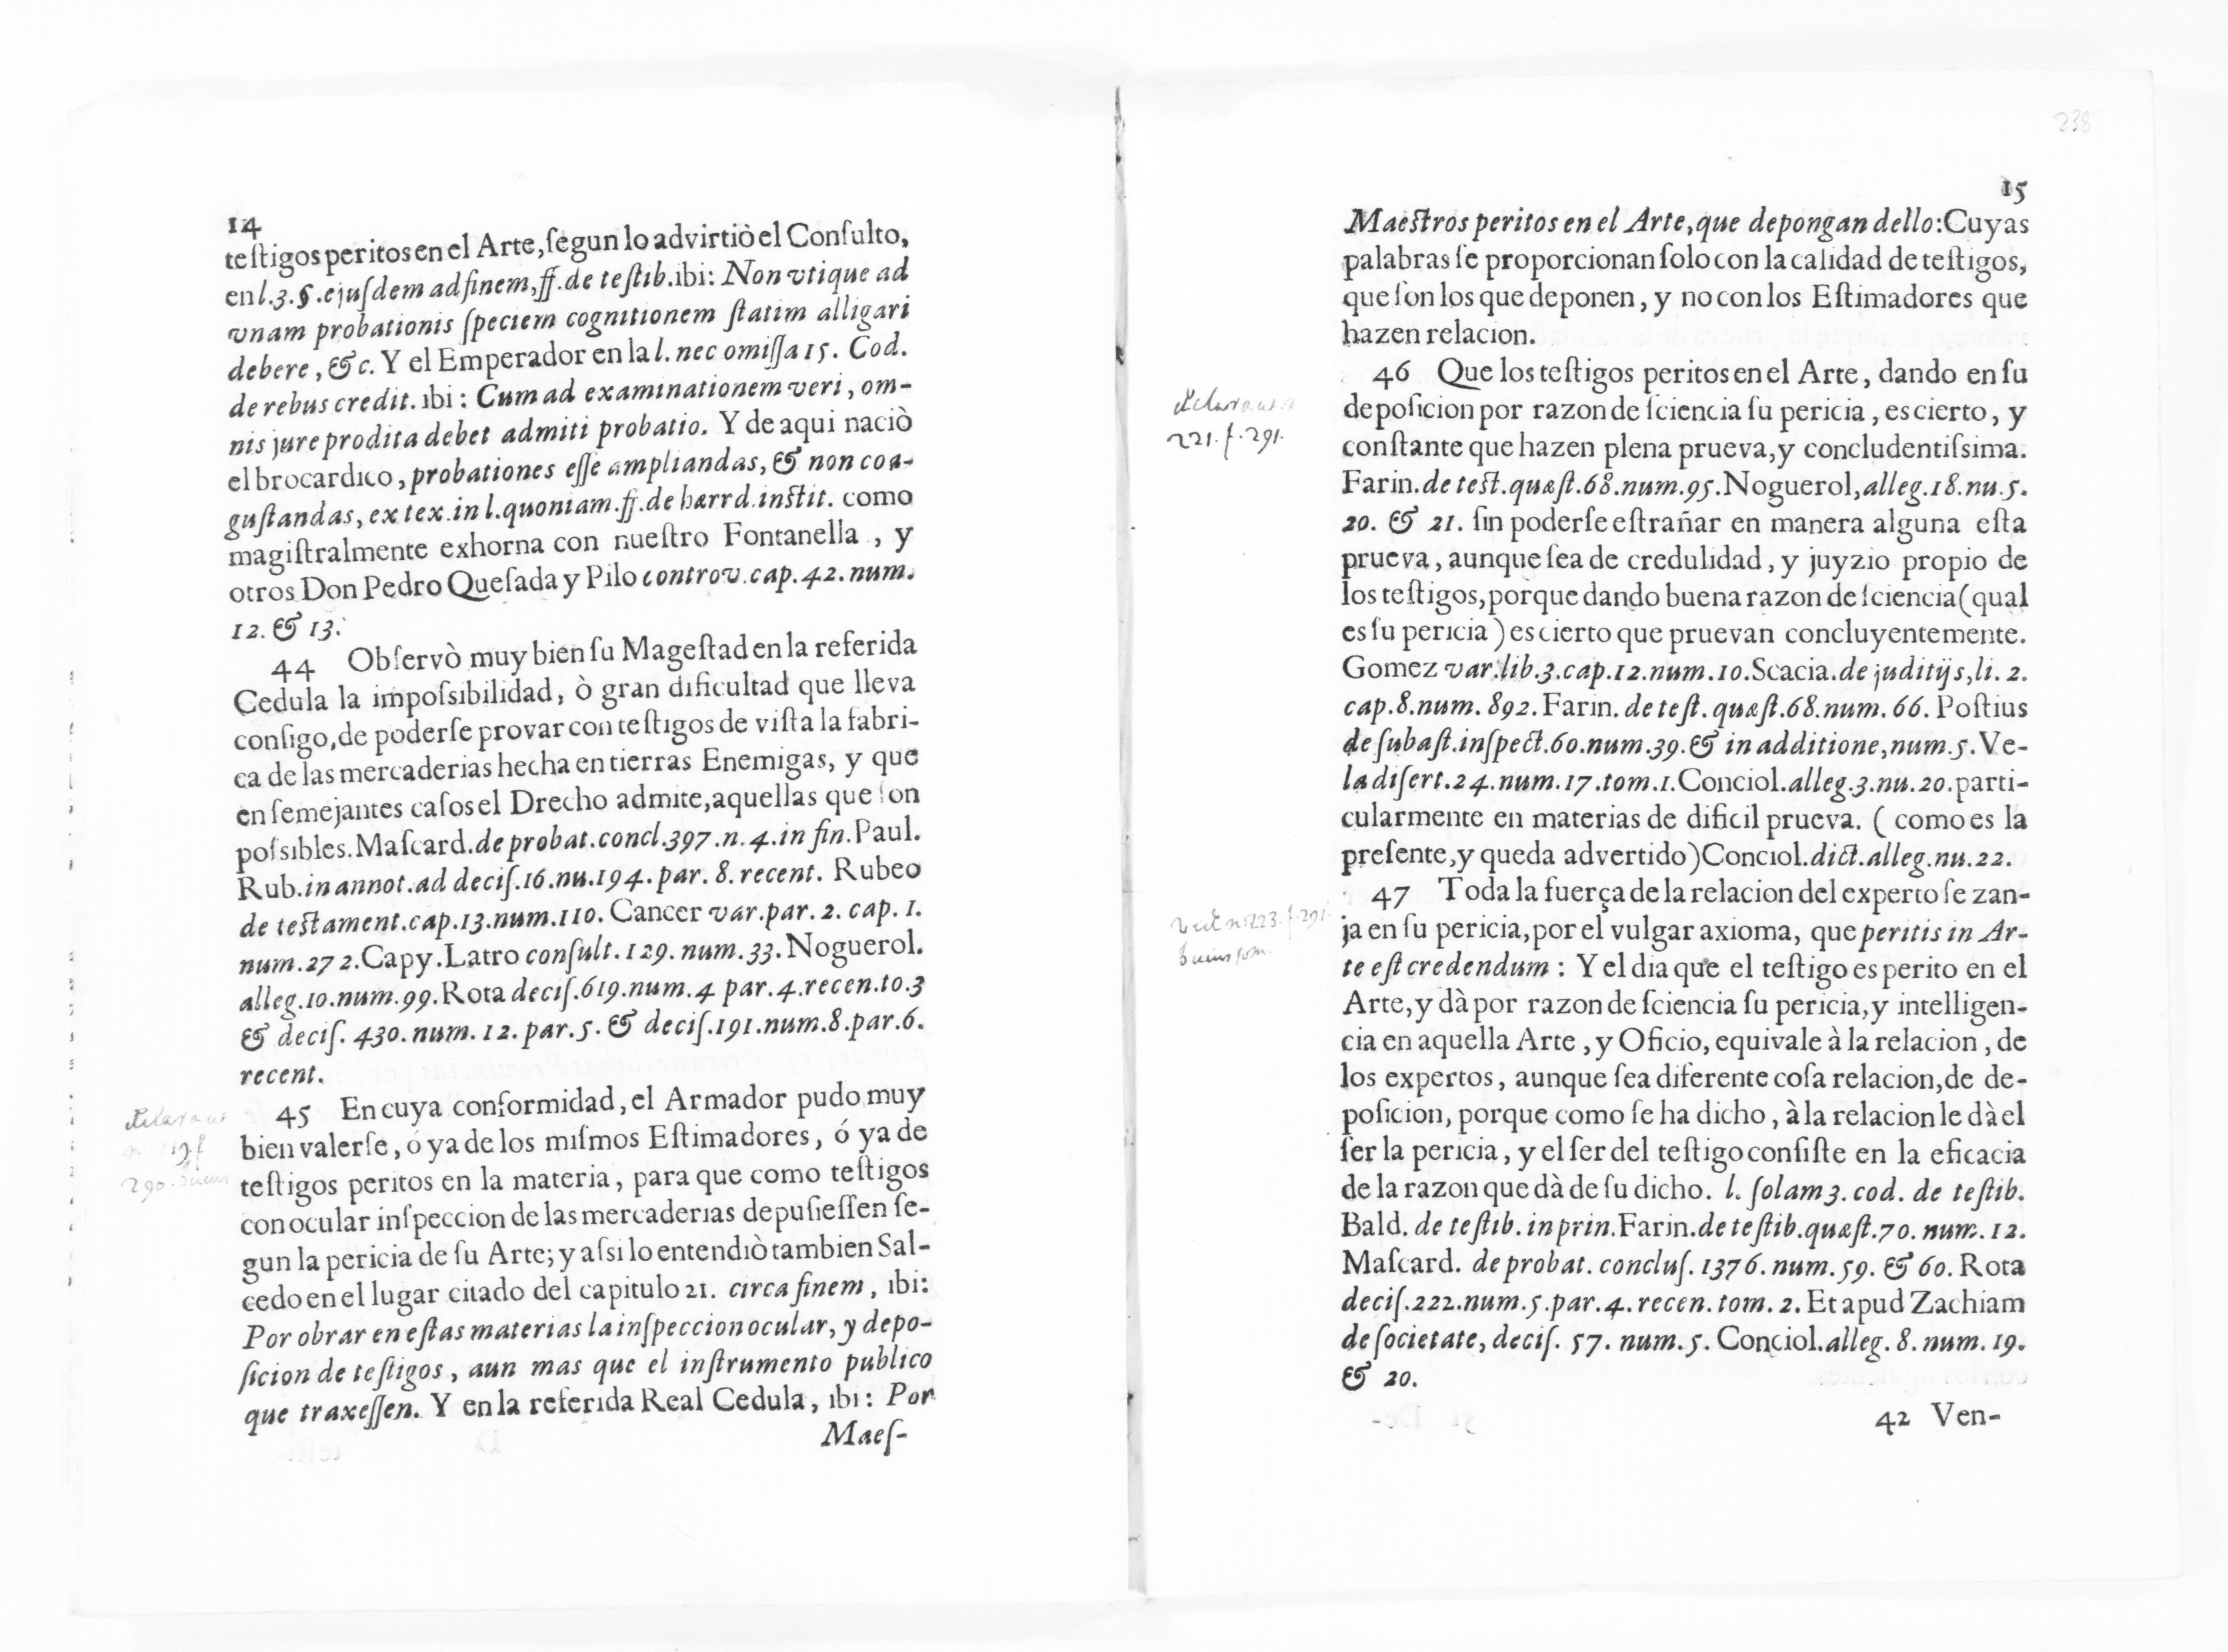 14
teſtigos peritos en el Arte, ſegun lo advirtiò el Conſulto,
en l. 3. §. ejuſdem ad finem, ff. de teſtib. ibi: Non vtique ad
vnam probationis ſpeciem cognitionem ſtatim alligari
debere, & c. Y el Emperador en la l. nec omiſſa 15. Cod.
de rebus credit. ibi: Cum ad examinationem veri, om-
nis jure prodita debet admiti probatio. Y de aqui naciò
el brocardico, probationes eſſe ampliandas, & non coa-
guſtandas, ex tex. in l. quoniam. ff. de hærrd. inſtit. como
magiſtralmente exhorna con nueſtro Fontanella, y
otros Don Pedro Queſada y Pilo controv. cap. 42. num.
12. & 13.
44 Obſervò muy bien ſu Mageſtad en la referida
Cedula la impoſsibilidad, ò gran dificultad que lleva
conſigo, de poderſe provar con teſtigos de viſta la fabri-
ca de las mercaderias hecha en tierras Enemigas, y que
en ſemejantes caſos el Drecho admite, aquellas que ſon
poſsibles. Maſcard. de probat. concl. 397. n. 4. in fin. Paul.
Rub. in annot. ad deciſ. 16. nu. 194. par. 8. recent. Rubeo
de teſtament. cap. 13. num. 110. Cancer var. par. 2. cap. 1.
num. 272. Capy. Latro conſult. 129. num. 33. Noguerol.
alleg. 10. num. 99. Rota deciſ. 619. num. 4 par. 4. recen. to. 3
& deciſ. 430. num. 12. par. 5. & deciſ. 191. num. 8. par. 6.
recent.
45 En cuya conformidad, el Armador pudo muy
bien valerſe, ó ya de los miſmos Eſtimadores, ó ya de
teſtigos peritos en la materia, para que como teſtigos
con ocular inſpeccion de las mercaderias depuſieſſen ſe-
gun la pericia de ſu Arte; y aſsi lo entendiò tambien Sal-
cedo en el lugar citado del capitulo 21. circa finem, ibi:
Por obrar en eſtas materias la inſpeccion ocular, y depo-
ſicion de teſtigos, aun mas que el inſtrumento publico
que traxeſſen. Y en la referida Real Cedula, ibi: Por
Maeſ-
238
15
Maeſtros peritos en el Arte, que depongan dello: Cuyas
palabras ſe proporcionan ſolo con la calidad de teſtigos,
que ſon los que deponen, y no con los Eſtimadores que
hazen relacion.
46 Que los teſtigos peritos en el Arte, dando en ſu
depoſicion por razon de ſciencia ſu pericia, es cierto, y
conſtante que hazen plena prueva, y concludentiſsima.
Farin. de teſt. quæſt. 68. num. 95. Noguerol, alleg. 18. nu. 5.
20. & 21. ſin poderſe eſtrañar en manera alguna eſta
prueva, aunque ſea de credulidad, y juyzio propio de
los teſtigos, porque dando buena razon de ſciencia (qual
es ſu pericia) es cierto que pruevan concluyentemente.
Gomez var. lib. 3. cap. 12. num. 10. Scacia. de juditijs, li. 2.
cap. 8. num. 892. Farin. de teſt. quæſt. 68. num. 66. Poſtius
de ſubaſt. inſpect. 60. num. 39. & in additione, num. 5. Ve-
la diſert. 24. num. 17. tom. 1. Conciol. alleg. 3. nu. 20. parti-
cularmente en materias de dificil prueva. (como es la
preſente, y queda advertido) Conciol. dict. alleg. nu. 22.
47 Toda la fuerça de la relacion del experto ſe zan-
ja en ſu pericia, por el vulgar axioma, que peritis in Ar-
te eſt credendum: Y el dia que el teſtigo es perito en el
Arte, y dà por razon de ſciencia ſu pericia, y intelligen-
cia en aquella Arte, y Oficio, equivale à la relacion, de
los expertos, aunque ſea diferente coſa relacion, de de-
poſicion, porque como ſe ha dicho, à la relacion le dà el
ſer la pericia, y el ſer del teſtigo conſiſte en la eficacia
de la razon que dà de ſu dicho. l. ſolam 3. cod. de teſtib.
Bald. de teſtib. in prin. Farin. de teſtib. quæſt. 70. num. 12.
Maſcard. de probat. concluſ. 1376. num. 59. & 60. Rota
deciſ. 222. num. 5. par. 4. recen. tom. 2. Et apud Zachiam
de ſocietate, deciſ. 57. num. 5. Conciol. alleg. 8. num. 19.
& 20.
42 Ven-
221. f. 291.